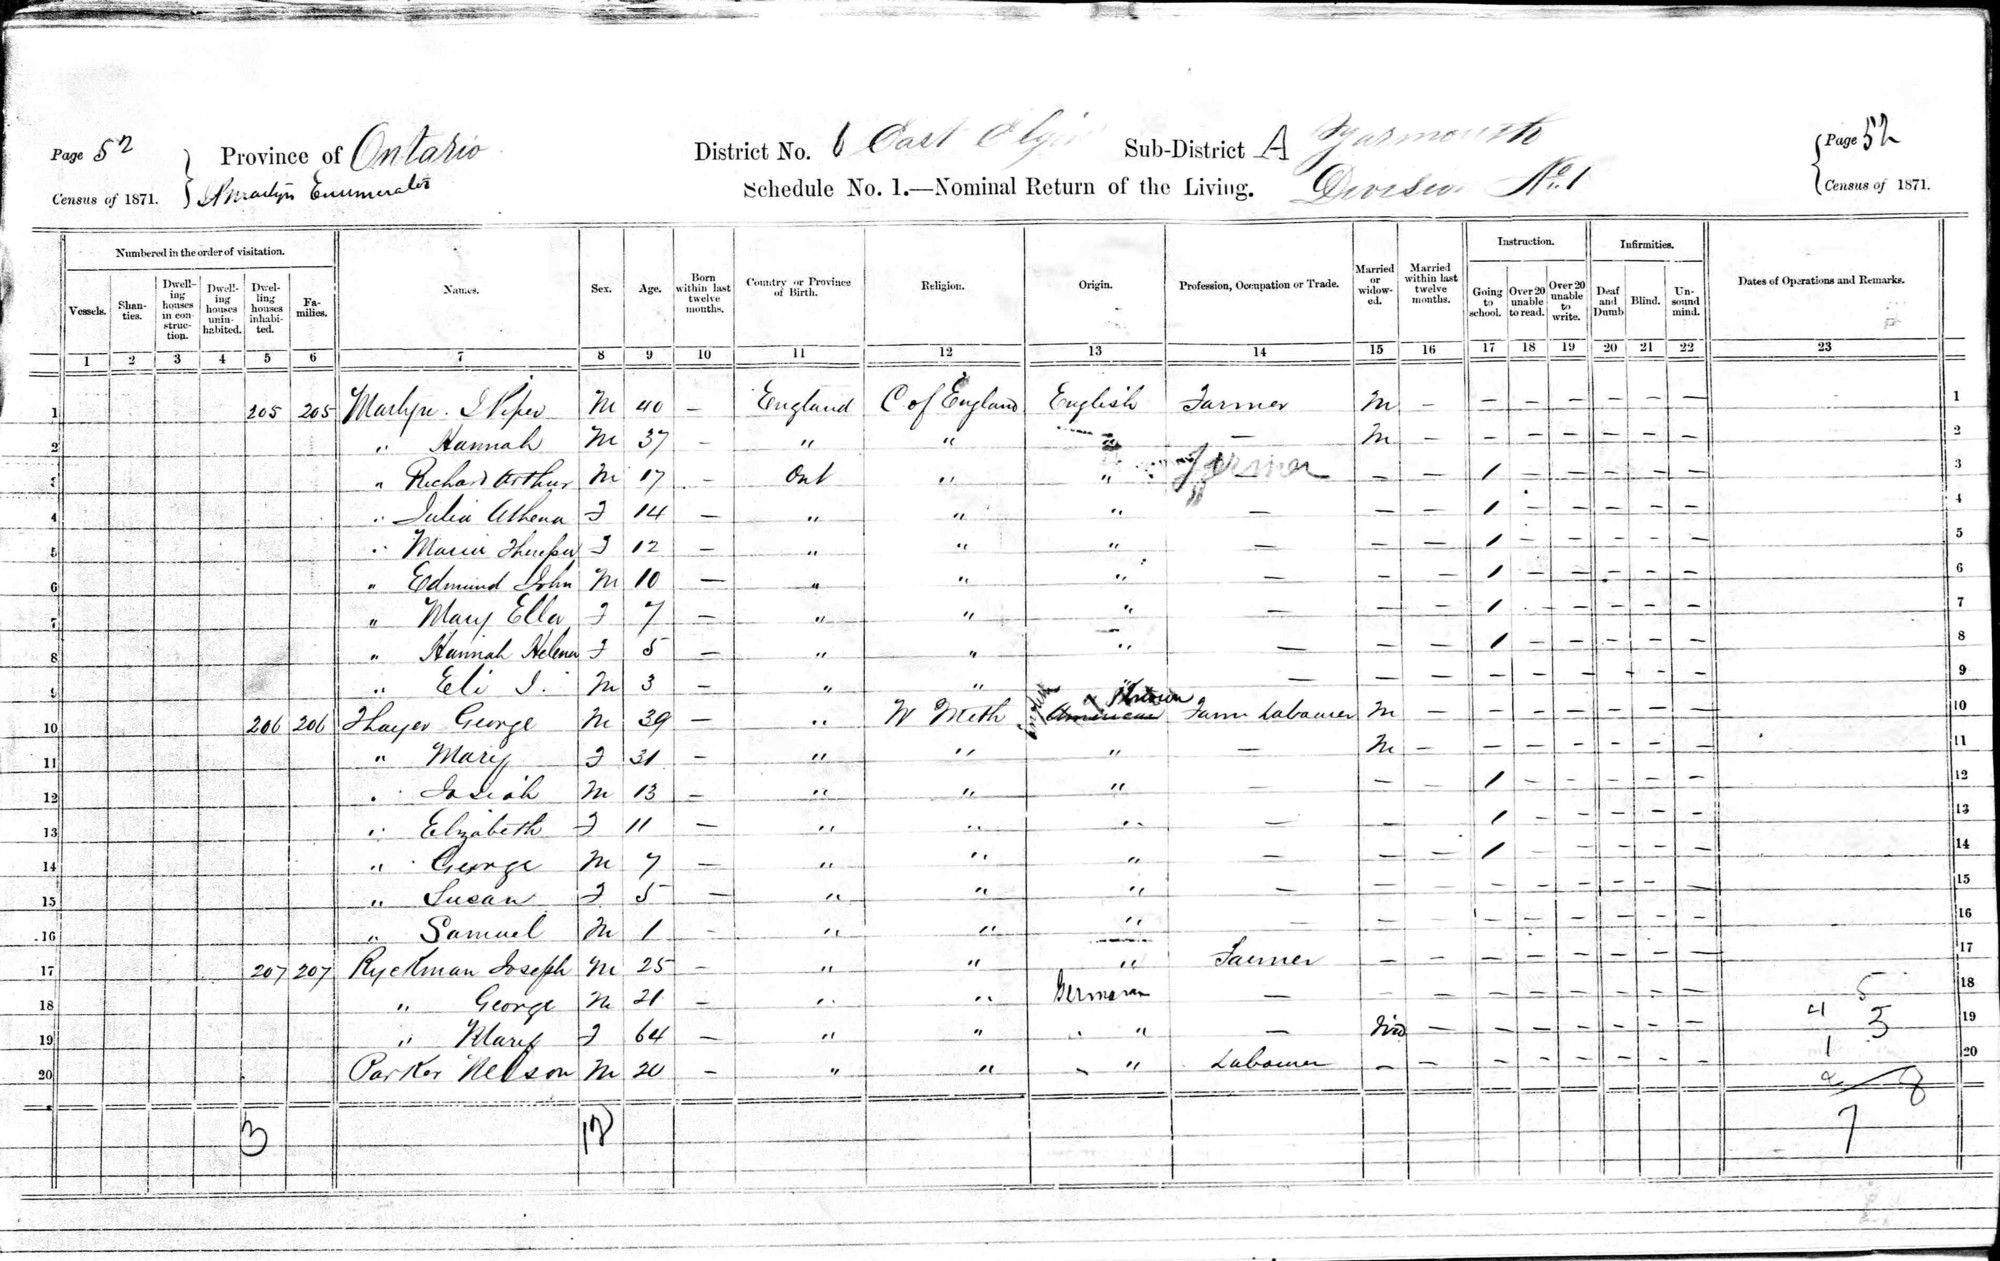 Page 52 Province of Ontario District No. 6 East Elgin Sub-District A Yarmouth Page 52
Census of 1871. Enumerator Schedule No. 1.—Nominal Return of the Living. Division No. 1 Census of 1871.
Numbered in the order of visitation. Instruction. Infirmities.
Vessels. Shanties. Dwelling houses in construction. Dwelling houses uninhabited. Dwelling houses inhabited. Families. Names. Sex. Age. Born within last twelve months. Country or Province of Birth. Religion. Origin. Profession, Occupation or Trade. Married or widowed. Married within last twelve months. Going to school. Over 20 unable to read. Over 20 unable to write. Deaf and Dumb Blind. Unsound mind. Dates of Operations and Remarks.
1 2 3 4 5 6 7 8 9 10 11 12 13 14 15 16 17 18 19 20 21 22 23
1 205 205 Marlyn. I Piper M 40 — England C of England English Farmer M — — — — — — — 1
2 " Hannah M 37 — " " " — M — — — — — — — 2
3 " Richard Arthur M 17 — Ont " " Farmer — — 1 — — — — — 3
4 " Julia Athena F 14 — " " " — — — 1 — — — — — 4
5 " Maria F 12 — " " " — — — 1 — — — — — 5
6 " Edmund John M 10 — " " " — — — 1 — — — — — 6
7 " Mary Ella F 7 — " " " — — — 1 — — — — — 7
8 " Hannah Helena F 5 — " " " — — — 1 — — — — — 8
9 " Eli I. M 3 — " " " — — — — — — — — — 9
10 206 206 Thayer George M 39 — " W Meth American Farm Labourer M — — — — — — — 10
11 " Mary F 31 — " " " — M — — — — — — — 11
12 " Josiah M 13 — " " " — — — 1 — — — — — 12
13 " Elizabeth F 11 — " " " — — — 1 — — — — — 13
14 " George M 7 — " " " — — — 1 — — — — — 14
15 " Susan F 5 — " " " — — — — — — — — — 15
16 " Samuel M 1 — " " " — — — — — — — — — 16
17 207 207 Ryckman Joseph M 25 — " " " Farmer — — — — — — — — 17
18 " George M 21 — " " German — — — — — — — — — 5 18
19 " Mary F 64 — " " " — Wid — — — — — — — 4 3 19
20 Parker Nelson M 20 — " " " Labourer — — — — — — — — 1 20
2 8
3 12 7